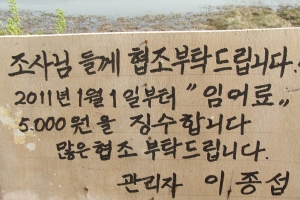 조사님 들께 협조부탁드립니다.
2011년 1월 1일부터 "임어료"
5.000원을 징수합니다
많은협조 부탁드립니다.
관리자 이종섭